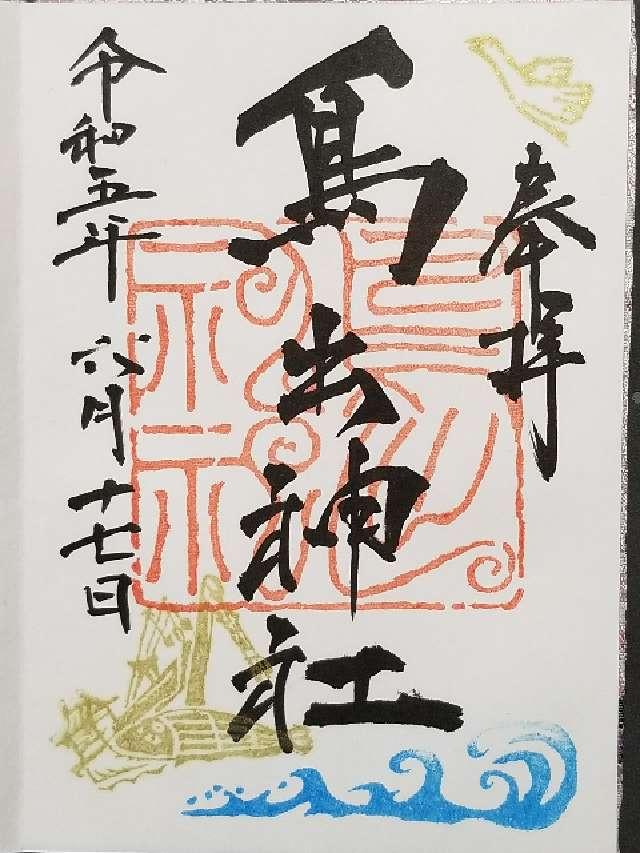 奉拝
鳥出神社
令和五年六月十七日